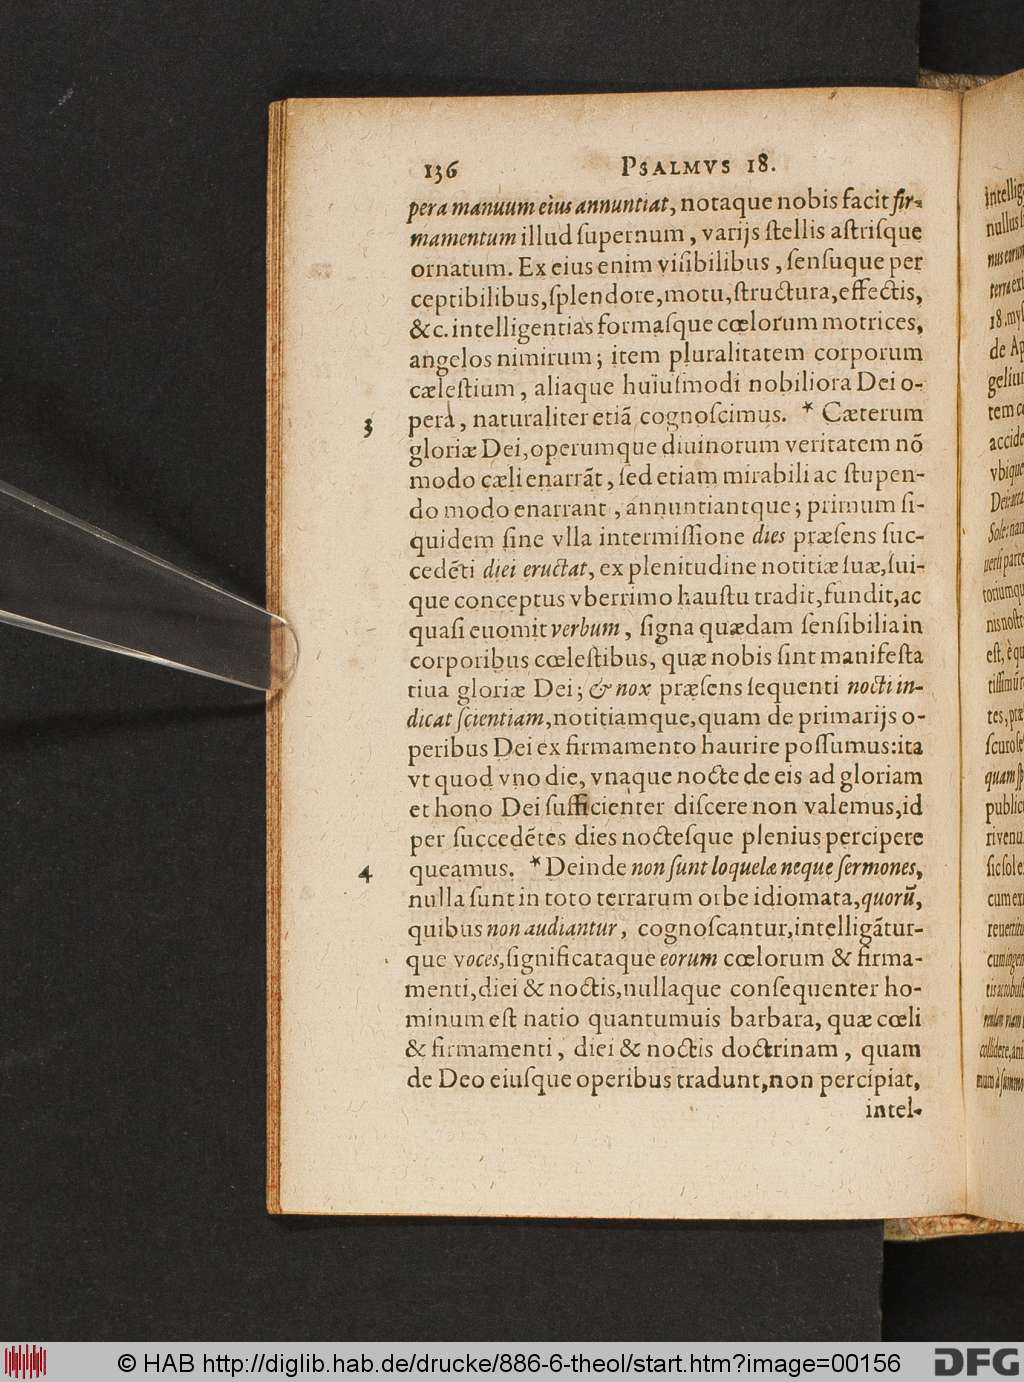 136 PSALMVS 18.
pera manuum eius annuntiat, notaque nobis facit fir-
mamentum illud ſupernum, varijs ſtellis aſtriſque
ornatum. Ex eius enim viſibilibus, ſenſuque per
ceptibilibus, ſplendore, motu, ſtructura, effectis,
&c. intelligentias formaſque cœlorum motrices,
angelos nimirum; item pluralitatem corporum
cæleſtium, aliaque huiuſmodi nobiliora Dei o-
3 pera, naturaliter etiã cognoſcimus. * Cæterum
gloriæ Dei, operumque diuinorum veritatem nõ
modo cæli enarrãt, ſed etiam mirabili ac ſtupen-
do modo enarrant, annuntiantque; primum ſi-
quidem ſine vlla intermiſſione dies præſens ſuc-
cedẽti diei eructat, ex plenitudine notitiæ ſuæ, ſui-
que conceptus vberrimo hauſtu tradit, fundit, ac
quaſi euomit verbum, ſigna quædam ſenſibilia in
corporibus cœleſtibus, quæ nobis ſint manifeſta
tiua gloriæ Dei; & nox præſens ſequenti nocti in-
dicat ſcientiam, notitiamque, quam de primarijs o-
peribus Dei ex firmamento haurire poſſumus: ita
vt quod vno die, vnaque nocte de eis ad gloriam
et hono Dei ſufficienter diſcere non valemus, id
per ſuccedẽtes dies nocteſque plenius percipere
4 queamus. * Deinde non ſunt loquelæ neque ſermones,
nulla ſunt in toto terrarum orbe idiomata, quorũ,
quibus non audiantur, cognoſcantur, intelligãtur-
que voces, ſignificataque eorum cœlorum & firma-
menti, diei & noctis, nullaque conſequenter ho-
minum eſt natio quantumuis barbara, quæ cœli
& firmamenti, diei & noctis doctrinam, quam
de Deo eiuſque operibus tradunt, non percipiat,
intel-
intellig
nullus
terra
18.
de Ap
geliu
tem
accide
vbique
Sole
parte
est
tes, præ
quam
public
ri venu
cum
© HAB http://diglib.hab.de/drucke/886-6-theol/start.htm?image=00156
DFG